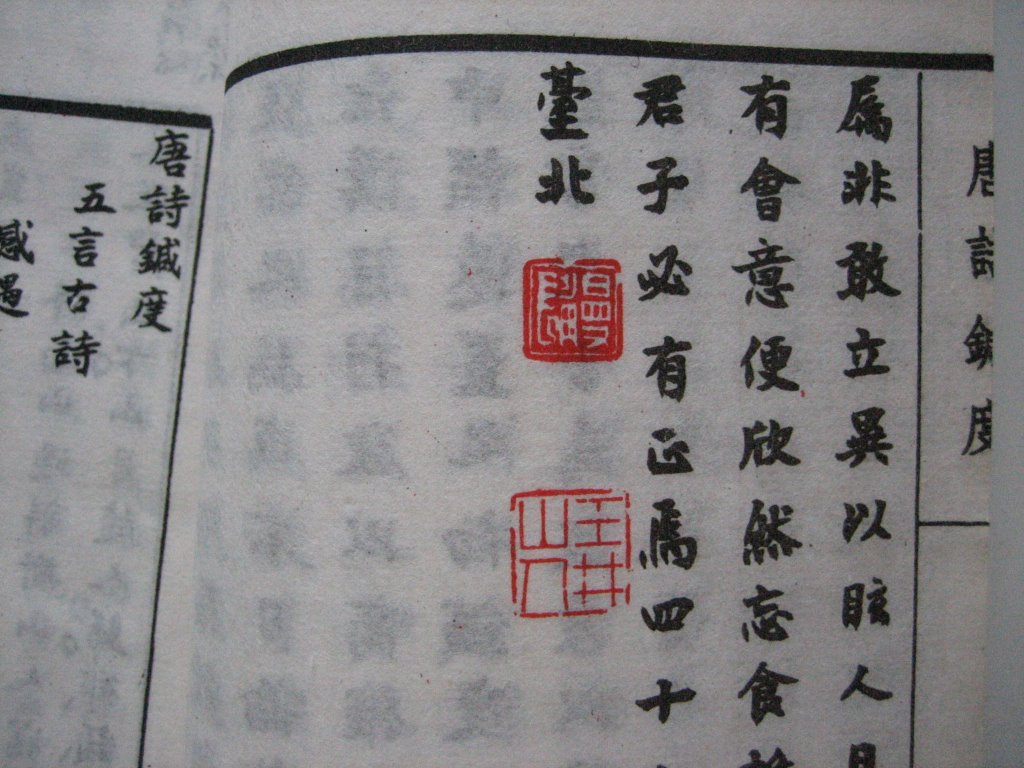 唐詩鍼度
厲非敢立異以眩人
有會意便欣然忘食
君子必有正焉四十
臺北
王井
山人
唐詩鍼度
五言古詩
感遇